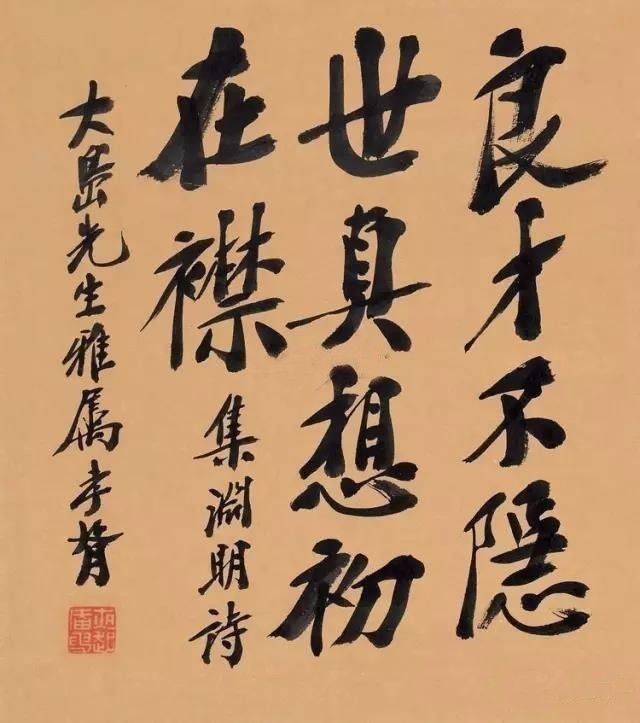 良才不隱
世真想初
在襟 集淵明詩
大島先生雅属 孝胥